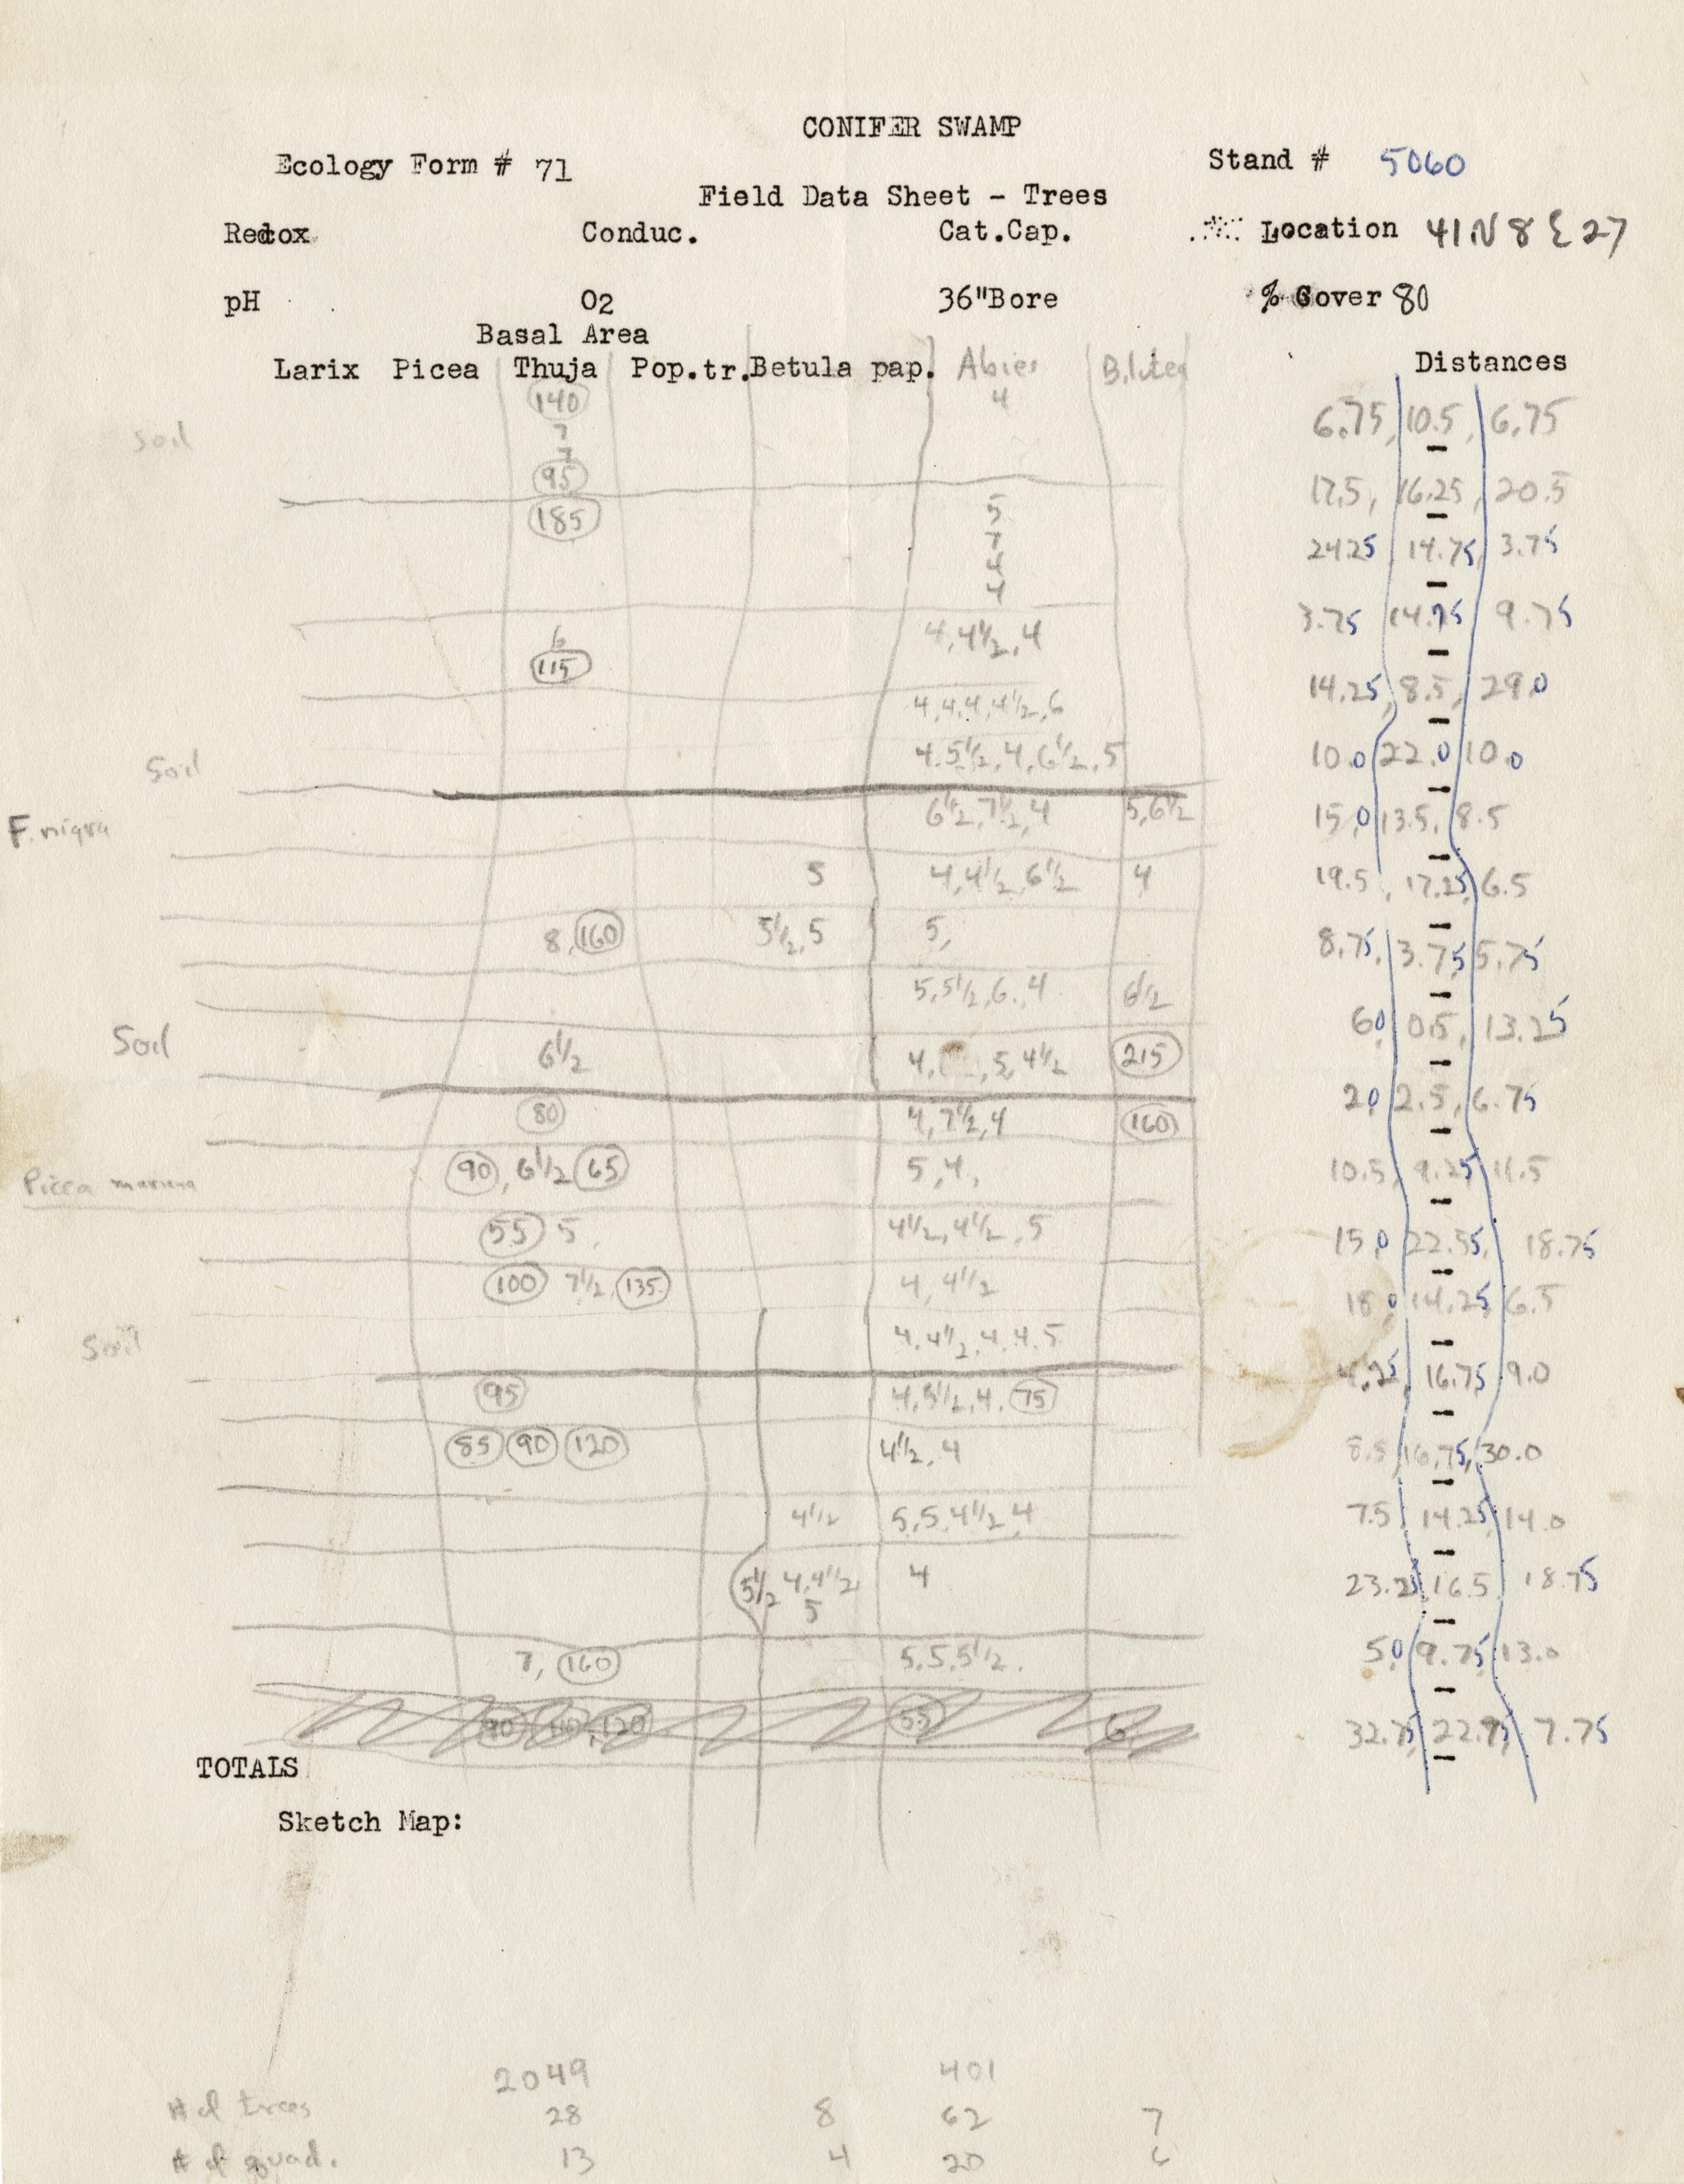 CONIFER SWAMP
Ecology Form # 71 Stand # 5060
Field Data Sheet - Trees
Redox Conduc. Cat.Cap. Location 41N 8 E 27
pH O2 36"Bore % Cover 80
Basal Area
Larix Picea Thuja Pop.tr. Betula pap. Abies B.lutea Distances
140 4 6.75, 10.5, 6.75
Soil 7
7
95 17.5, 16.25, 20.5
185 5
7 24.25 14.75, 3.75
4
4
6 4, 4½, 4 3.75 14.75 9.75
115
4, 4, 4, 4½, 6 14.25, 8.5, 29.0
Soil 4, 5½, 4, 6½, 5 10.0 22.0 10.0
F. nigra 6½, 7½, 4 5, 6½ 15.0 13.5, 8.5
5 4, 4½, 6½ 4 19.5, 17.25, 6.5
8, 160 5½, 5 5, 8.75, 3.75 5.75
5, 5½, 6, 4 6½ 6.0 0.5, 13.25
Soil 6½ 4, 5, 4½ 215
80 4, 7½, 4 160 2.0 2.5, 6.75
Picea mariana 90, 6½ 65 5, 4, 10.5, 9.25 11.5
55 5, 4½, 4½, 5 15.0 22.55, 18.75
100 7½, 135 4, 4½ 18.0 14.25 6.5
Soil 4, 4½, 4, 4, 5
95 4, 5½, 4, 75 4.25, 16.75 9.0
85 90 120 4½, 4 8.5 16.75, 30.0
4½ 5, 5, 4½, 4 7.5 14.25 14.0
5½ 4, 4½ 4 23.25 16.5 18.75
5
7, 160 5, 5, 5½. 5.0 9.75 13.0
90 110, 120 55 6 32.75, 22.75, 7.75
TOTALS
Sketch Map:
2049 401
# of trees 28 8 62 7
# of quad. 13 4 20 6